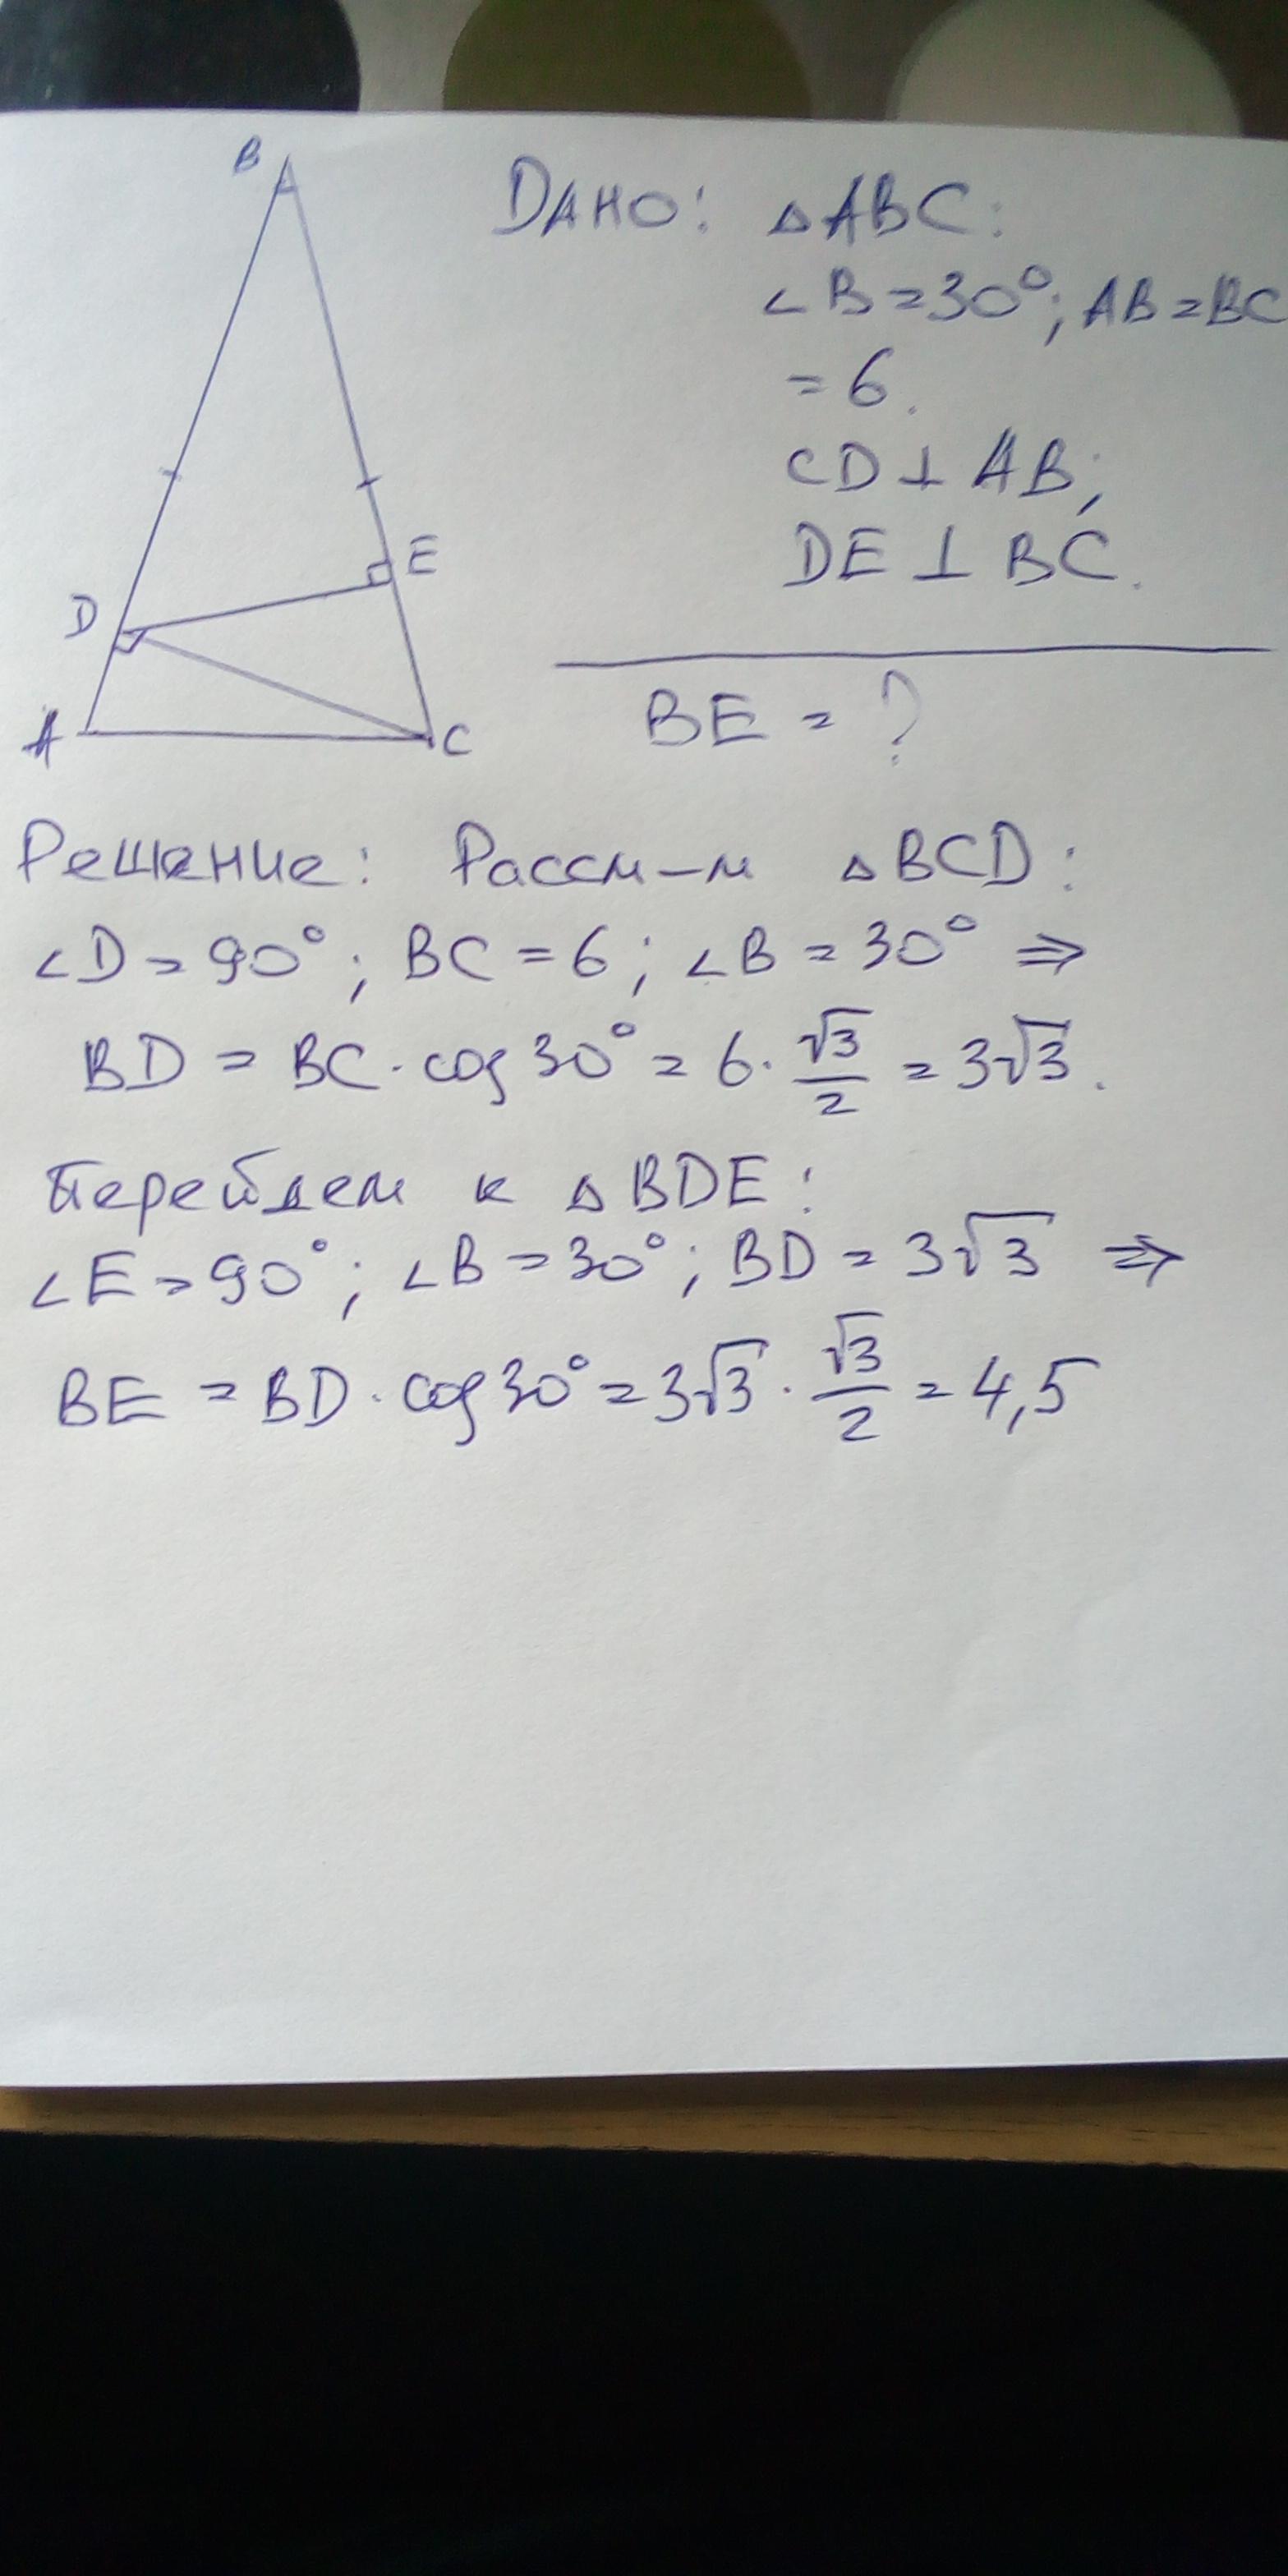 B
ДАНО: △ABC:
∠B = 30°; AB = BC
= 6.
CD ⊥ AB;
E
DE ⊥ BC.
D
BE = ?
A
C
Решение: Рассм-м △BCD:
∠D = 90°; BC = 6; ∠B = 30° ⇒
BD = BC · cos 30° = 6 · √3/2 = 3√3.
Перейдем к △BDE:
∠E = 90°; ∠B = 30°; BD = 3√3 ⇒
BE = BD · cos 30° = 3√3 · √3/2 = 4,5